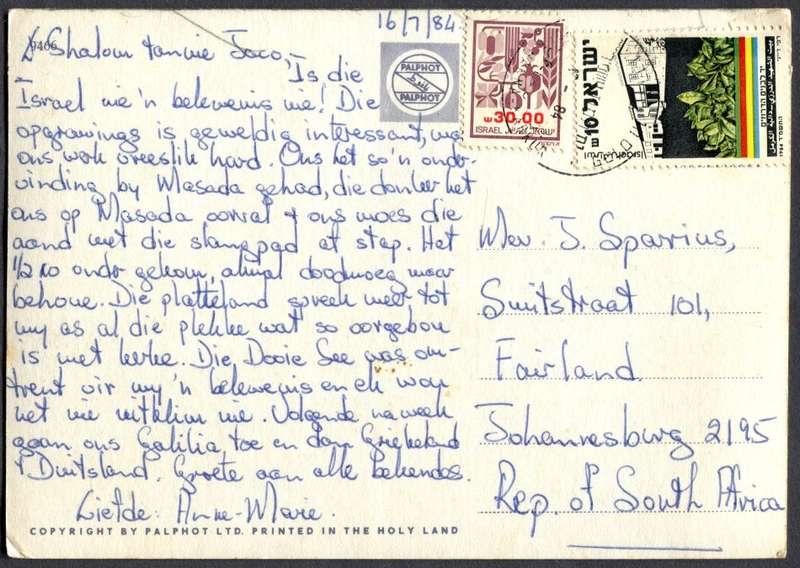 16/7/84
9466
Shalom tannie Jaco,-
Is die
Israel nie 'n belewenis nie! Die
opgrawings is geweldig interessant, maar
ons werk vreeslik hard. Ons het so'n onder-
vinding by Masada gehad, die donker het
ons op Masada oorval & ons moes die
aand met die slangpad af stap. Het
½ 10 onder gekom, almal doodmoeg maar
behoue. Die platteland spreek meer tot
my as al die plekke wat so oorgebou
is met kerke. Die Dooie See was om-
trent vir my 'n belewenis en ek wou
net nie uitklim nie. Volgende naweek
gaan ons Galilia toe en dan Griekeland
& Duitsland. Groete aan alle bekendes.
Liefde: Anne-Marie.
COPYRIGHT BY PALPHOT LTD. PRINTED IN THE HOLY LAND
PALPHOT
PALPHOT
30.00
ISRAEL
ישראל
Mev. J. Sparrius,
Smitstraat 101,
Fairland
Johannesburg 2195
Rep. of South Africa